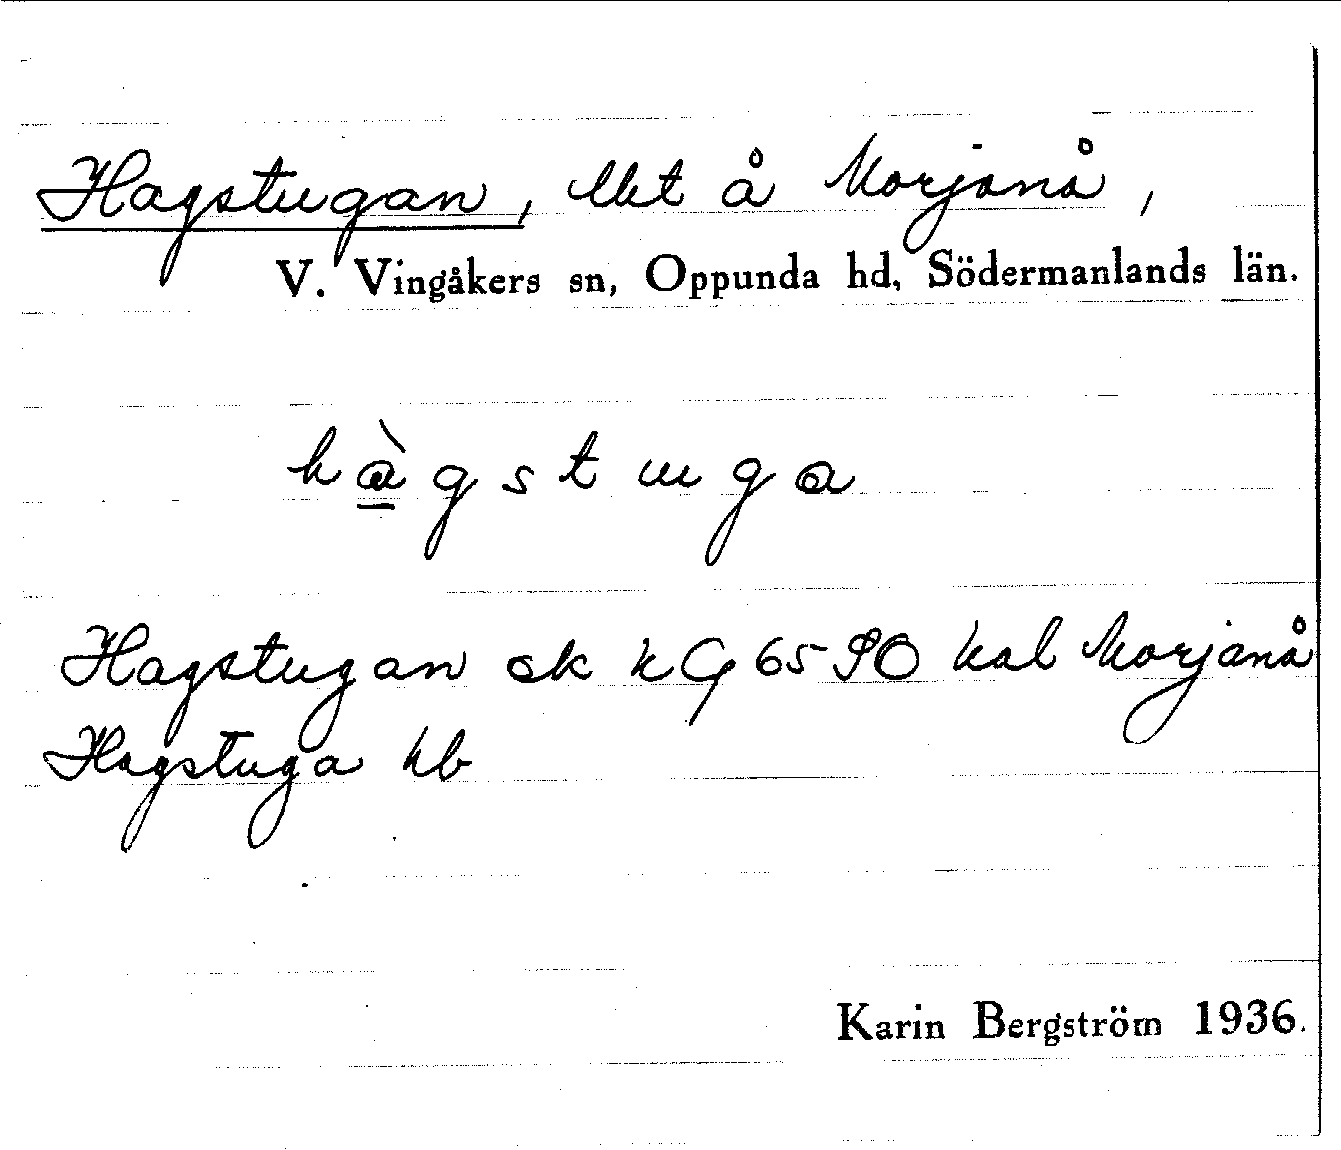 Hagstugan, lht å Morjanå,
V. Vingåkers sn, Oppunda hd, Södermanlands län.
hàgstuga
Hagstugan ek kG 6590 kal Morjanå
Hagstuga hb
Karin Bergström 1936.